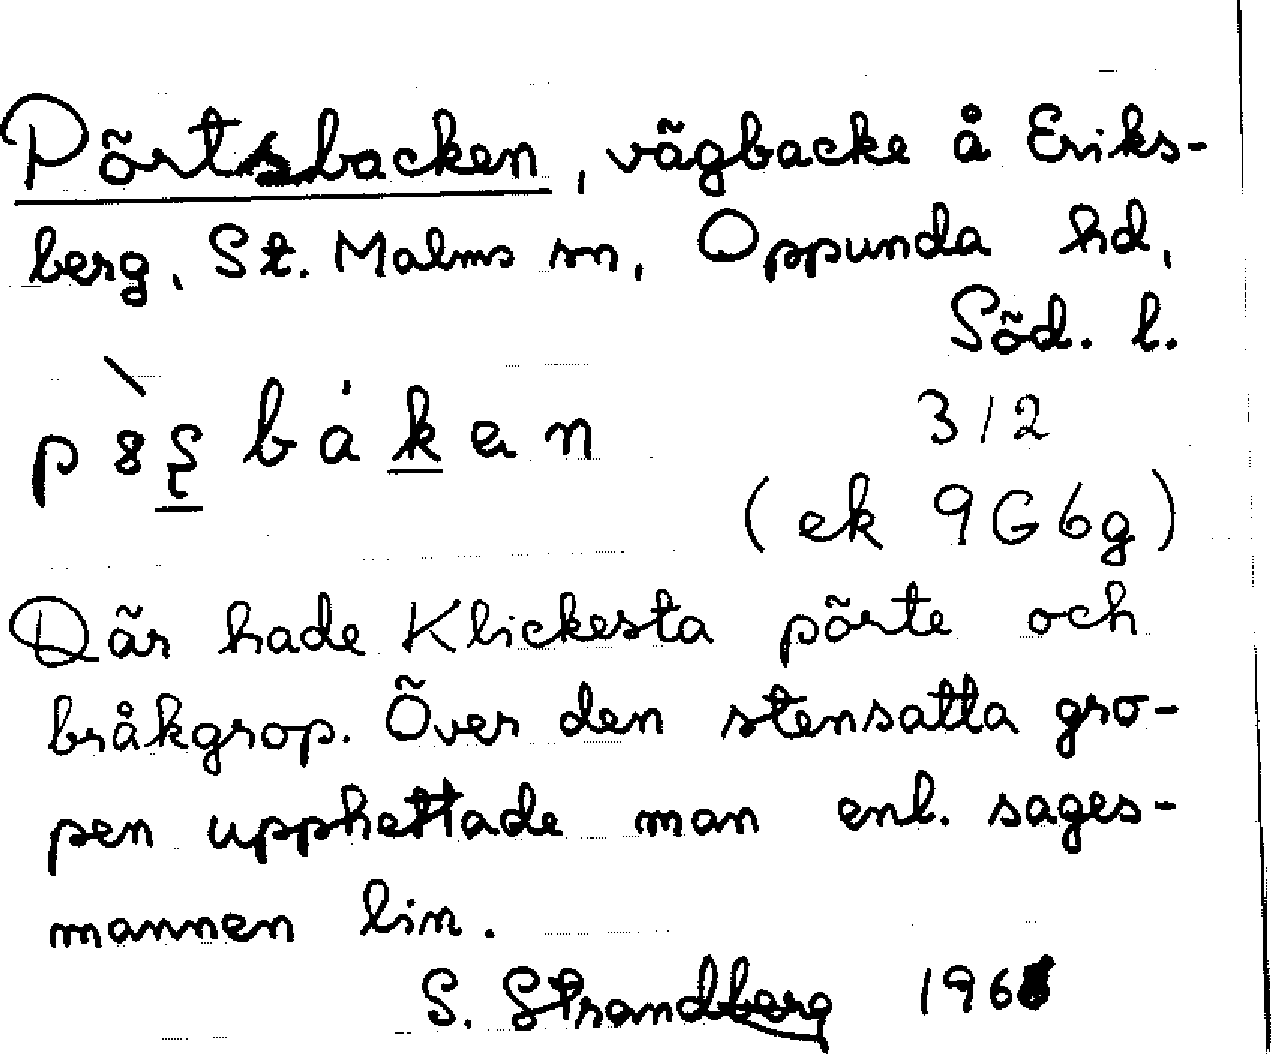 Pörtsbacken, vägbacke å Eriks-
berg, St. Malms sn, Oppunda hd,
Söd. l.
312
(ek 9G6g)
Där hade Klickesta pörte och
bråkgrop. Över den stensatta gro-
pen upphettade man enl. sages-
mannen lin.
S. Strandberg